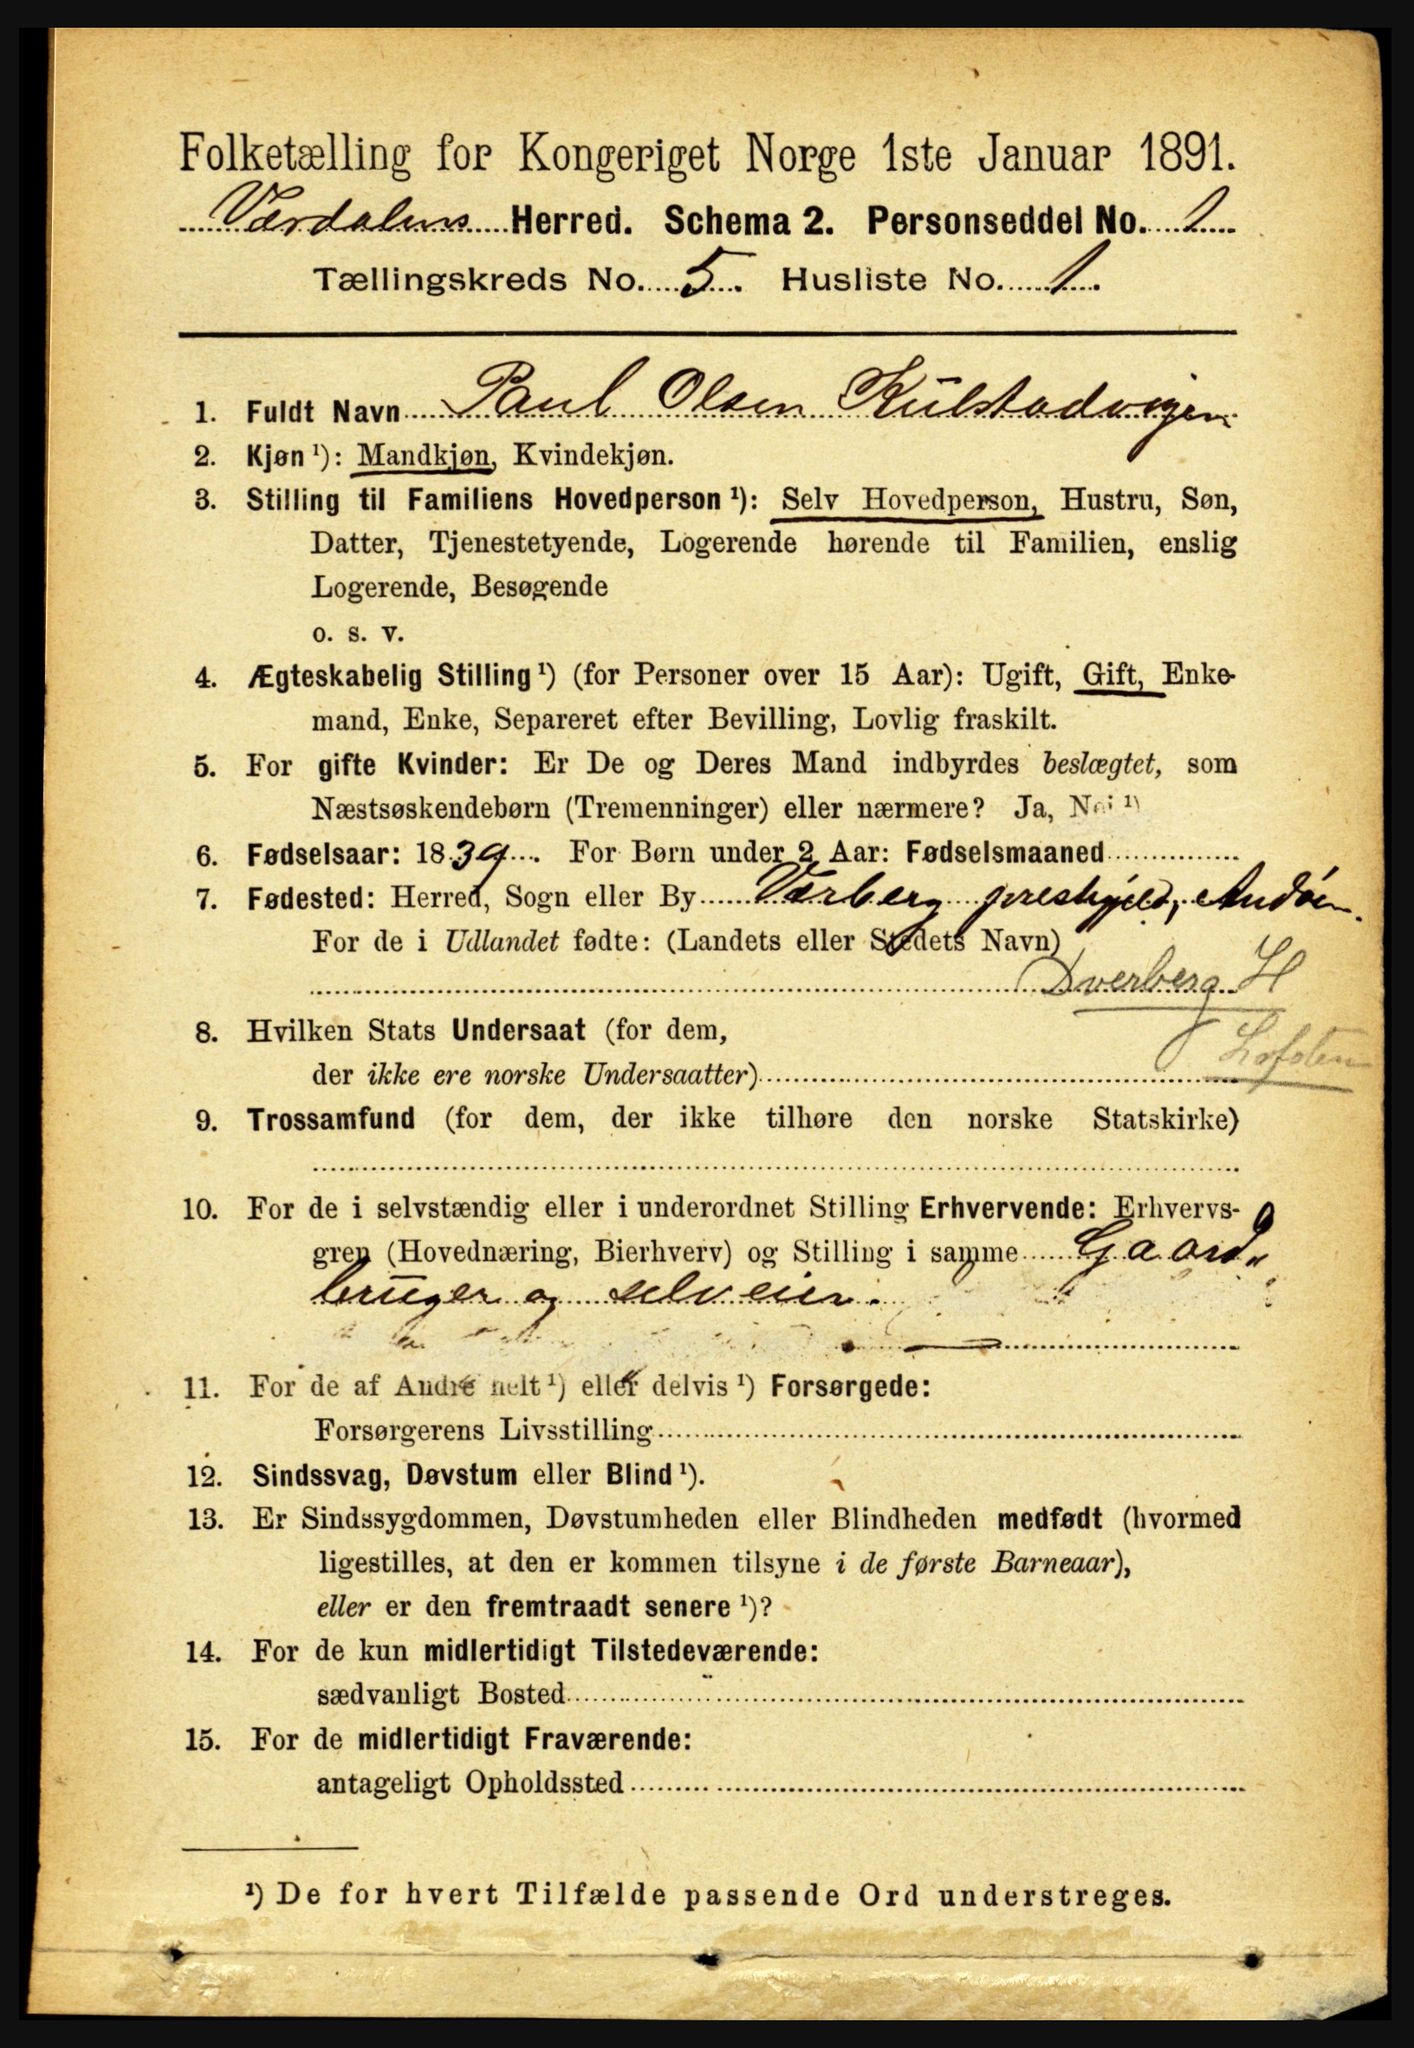 Folketælling for Kongeriget Norge 1ste Januar 1891.
Værdalens Herred. Schema 2. Personseddel No. 1
Tællingskreds No. 5. Husliste No. 1.
1. Fuldt Navn Paul Olsen Külstadvigen
2. Kjøn ¹): Mandkjøn, Kvindekjøn.
3. Stilling til Familiens Hovedperson ¹): Selv Hovedperson, Hustru, Søn,
Datter, Tjenestetyende, Logerende hørende til Familien, enslig
Logerende, Besøgende
o. s. v.
4. Ægteskabelig Stilling ¹) (for Personer over 15 Aar): Ugift, Gift, Enke-
mand, Enke, Separeret efter Bevilling, Lovlig fraskilt.
5. For gifte Kvinder: Er De og Deres Mand indbyrdes beslægtet, som
Næstsøskendebørn (Tremenninger) eller nærmere? Ja, Nei ¹)
6. Fødselsaar: 1839. For Børn under 2 Aar: Fødselsmaaned
7. Fødested: Herred, Sogn eller By Værberg prestgjeld, Andøen.
For de i Udlandet fødte: (Landets eller Stedets Navn)
Dverberg H
8. Hvilken Stats Undersaat (for dem,
Lofoten
der ikke ere norske Undersaatter)
9. Trossamfund (for dem, der ikke tilhøre den norske Statskirke)
10. For de i selvstændig eller i underordnet Stilling Erhvervende: Erhvervs-
gren (Hovednæring, Bierhverv) og Stilling i samme Gaard-
bruger og selveier.
11. For de af Andre helt ¹) eller delvis ¹) Forsørgede:
Forsørgerens Livsstilling
12. Sindssvag, Døvstum eller Blind ¹).
13. Er Sindssygdommen, Døvstumheden eller Blindheden medfødt (hvormed
ligestilles, at den er kommen tilsyne i de første Barneaar),
eller er den fremtraadt senere ¹)?
14. For de kun midlertidigt Tilstedeværende:
sædvanligt Bosted
15. For de midlertidigt Fraværende:
antageligt Opholdssted
¹) De for hvert Tilfælde passende Ord understreges.